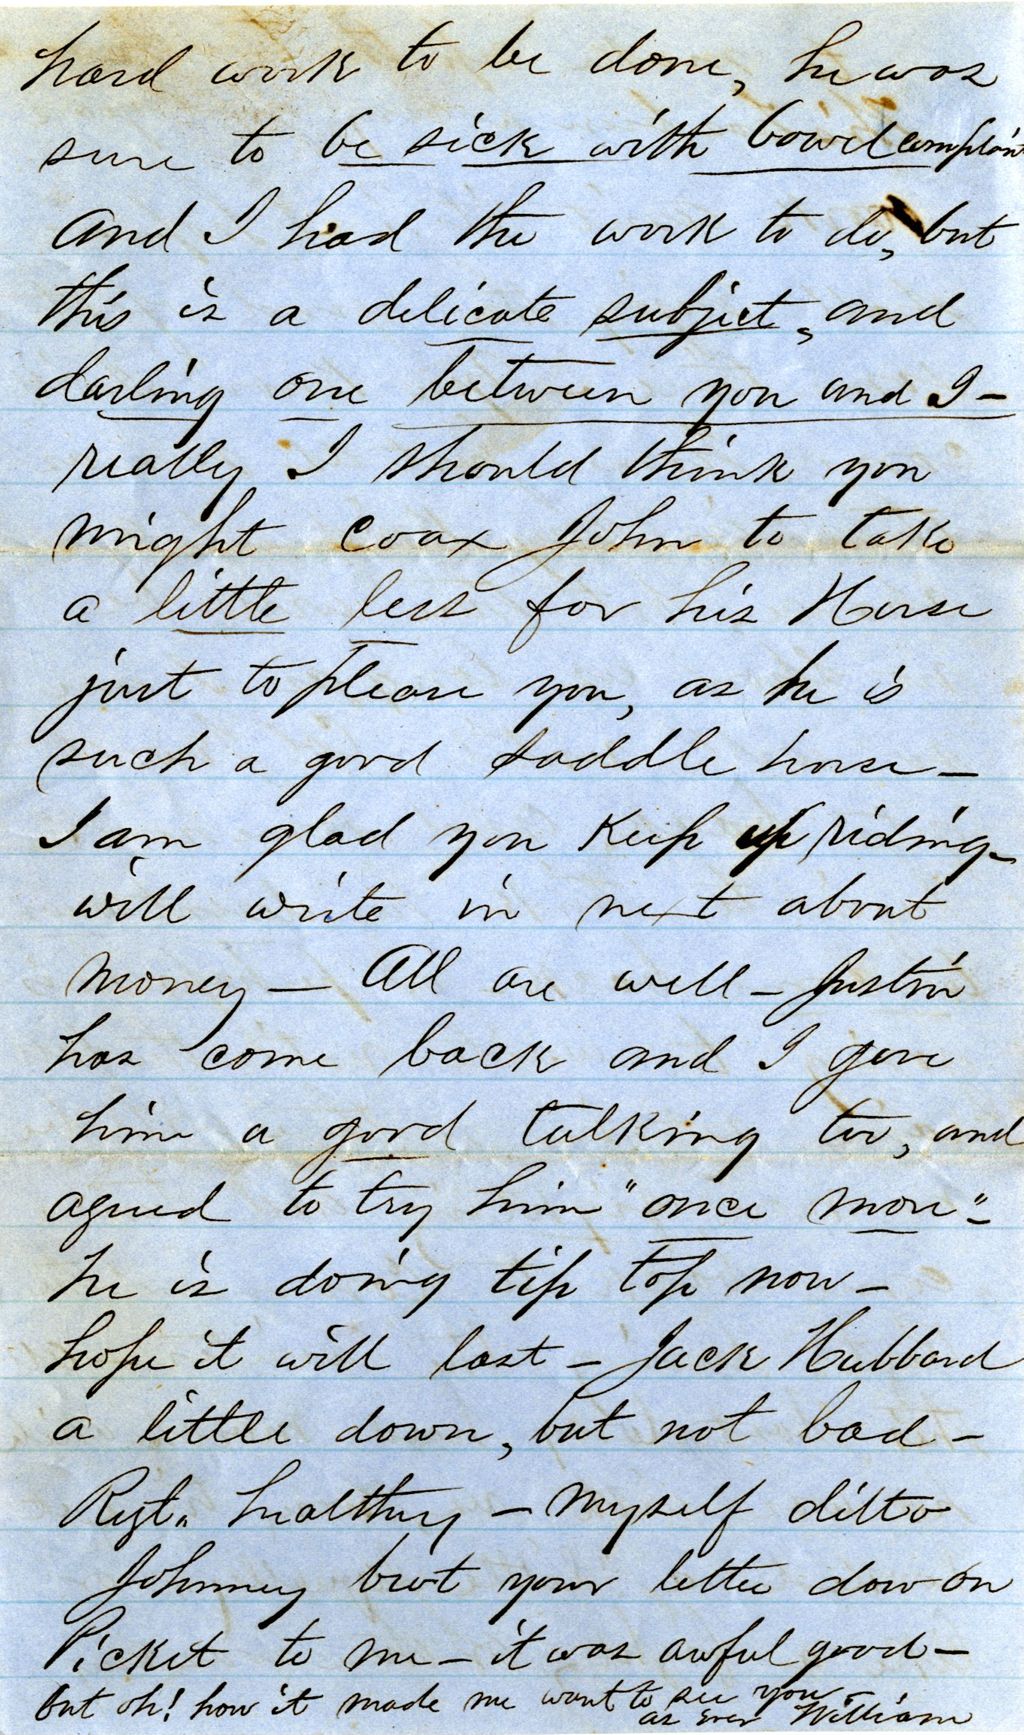 hard work to be done, he was
sure to be sick with bowel complaint
and I had the work to do, but
this is a delicate subject, and
darling one between you and I—
really I should think you
might coax John to take
a little less for his Horse
just to please you, as he is
such a good saddle horse—
I am glad you keep up riding—
will write in next about
money— All are well— Justin
has come back and I gave
him a good talking too, and
agreed to try him "once more"—
he is doing tip top now—
hope it will last— Jack Hubbard
a little down, but not bad—
Regt. healthy— myself ditto
Johnney brot your letter down on
Picket to me— it was awful good—
but oh! how it made me want to see you—
as ever William